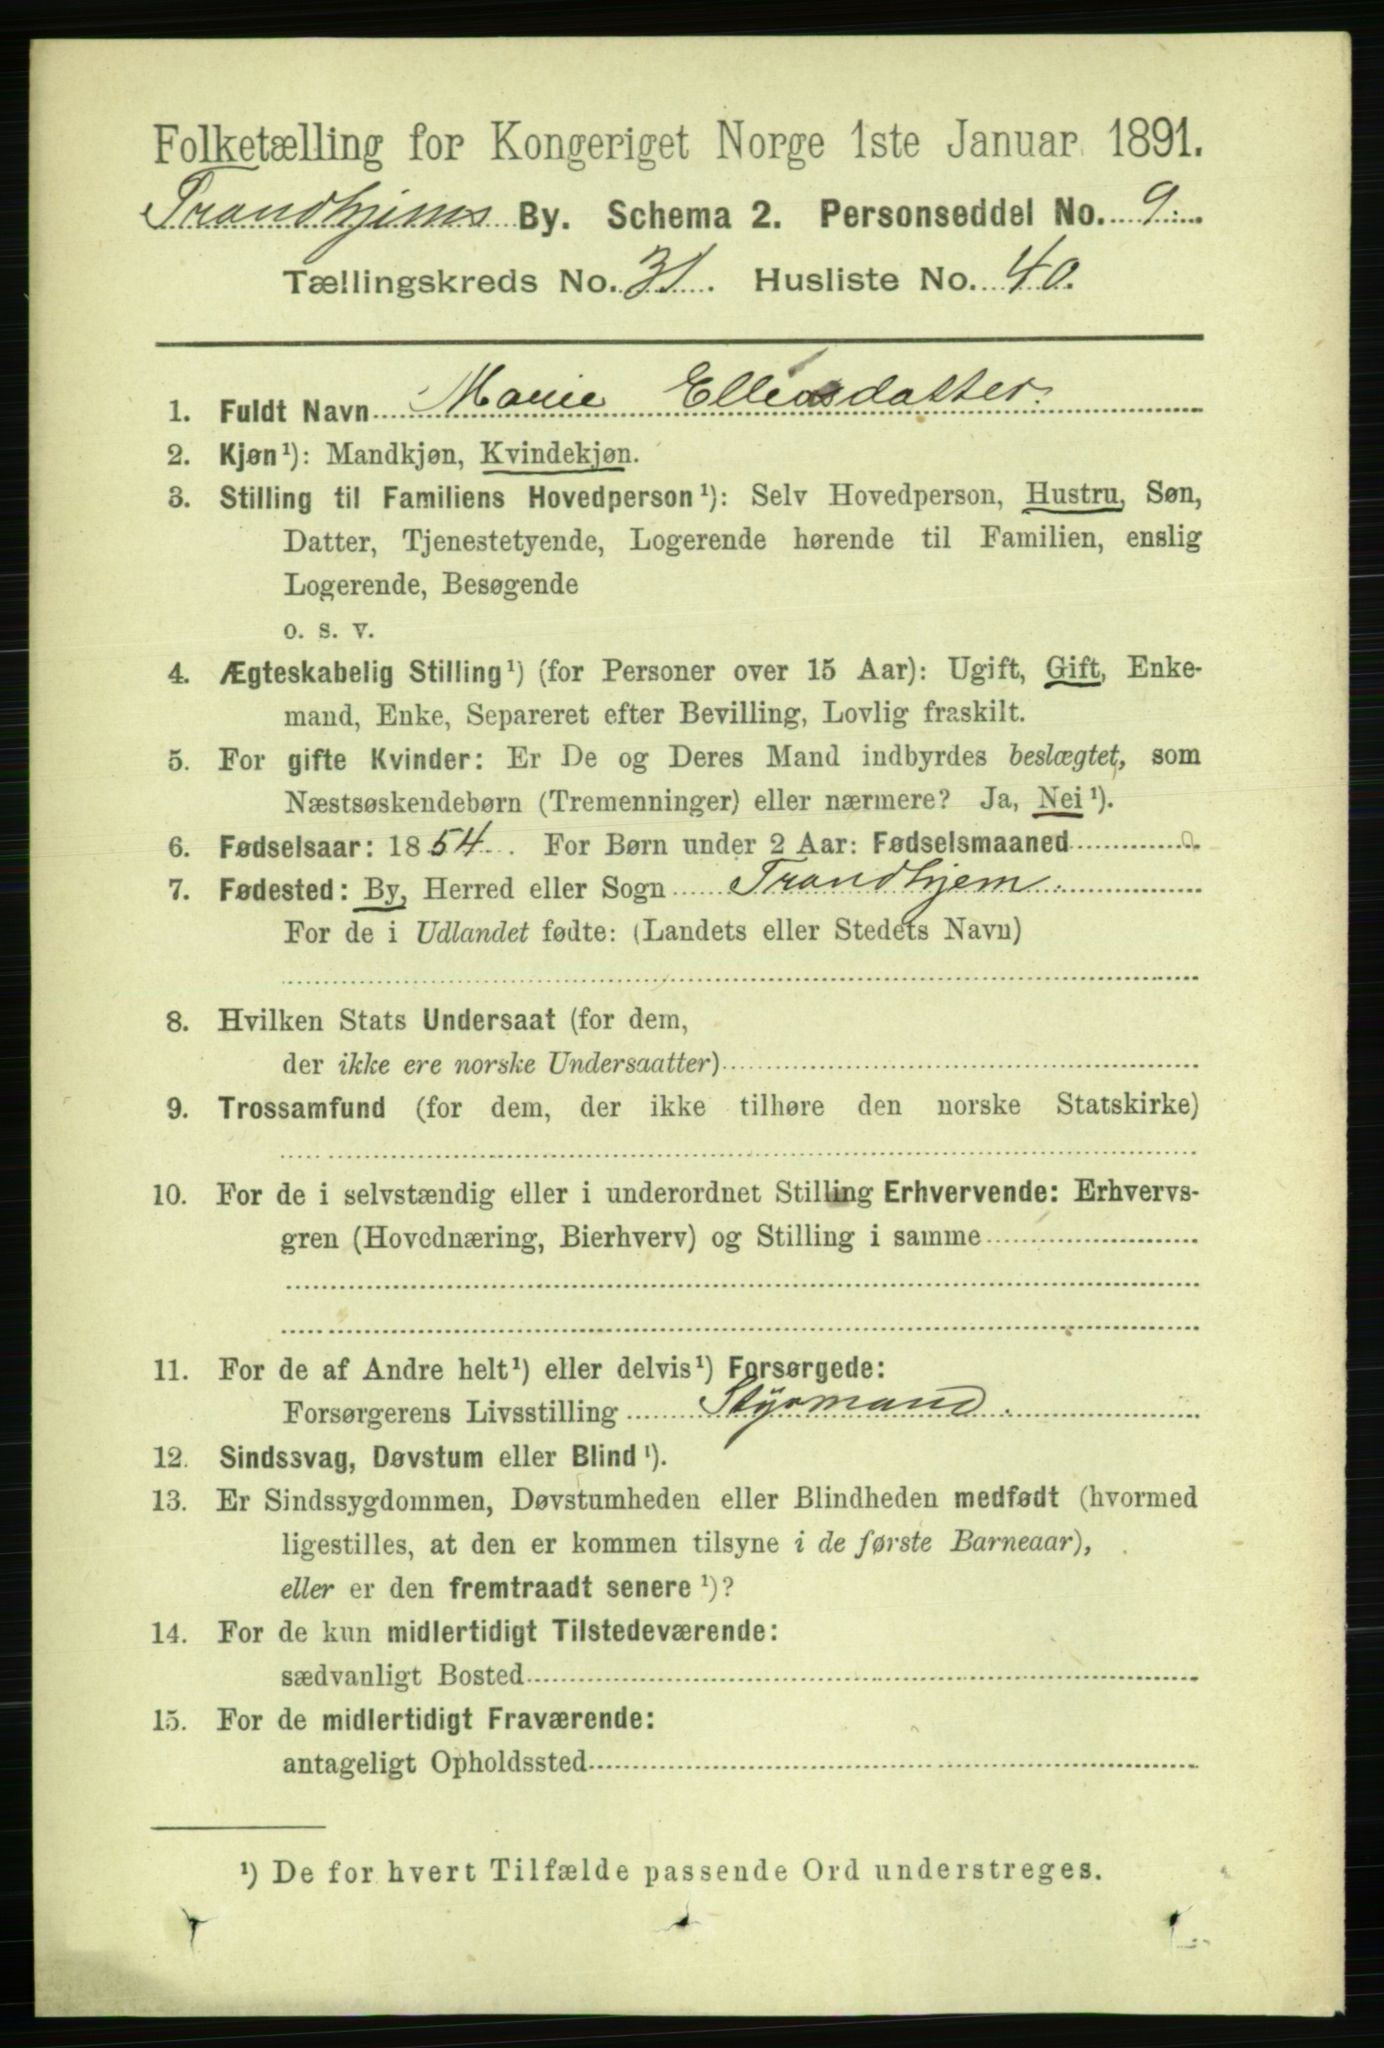 Folketælling for Kongeriget Norge 1ste Januar 1891.
Trondhjems By. Schema 2. Personseddel No. 9.
Tællingskreds No. 31. Husliste No. 40.
1. Fuldt Navn Marie Elliasdatter.
2. Kjøn¹): Mandkjøn, Kvindekjøn.
3. Stilling til Familiens Hovedperson¹): Selv Hovedperson, Hustru, Søn,
Datter, Tjenestetyende, Logerende hørende til Familien, enslig
Logerende, Besøgende
o. s. v.
4. Ægteskabelig Stilling¹) (for Personer over 15 Aar): Ugift, Gift, Enke-
mand, Enke, Separeret efter Bevilling, Lovlig fraskilt.
5. For gifte Kvinder: Er De og Deres Mand indbyrdes beslægtet, som
Næstsøskendebørn (Tremenninger) eller nærmere? Ja, Nei¹).
6. Fødselsaar: 1854. For Børn under 2 Aar: Fødselsmaaned
7. Fødested: By, Herred eller Sogn Trondhjem.
For de i Udlandet fødte: (Landets eller Stedets Navn)
8. Hvilken Stats Undersaat (for dem,
der ikke ere norske Undersaatter)
9. Trossamfund (for dem, der ikke tilhøre den norske Statskirke)
10. For de i selvstændig eller i underordnet Stilling Erhvervende: Erhvervs-
gren (Hovednæring, Bierhverv) og Stilling i samme
11. For de af Andre helt¹) eller delvis¹) Forsørgede:
Forsørgerens Livsstilling Styrmand.
12. Sindssvag, Døvstum eller Blind¹).
13. Er Sindssygdommen, Døvstumheden eller Blindheden medfødt (hvormed
ligestilles, at den er kommen tilsyne i de første Barneaar),
eller er den fremtraadt senere¹)?
14. For de kun midlertidigt Tilstedeværende:
sædvanligt Bosted
15. For de midlertidigt Fraværende:
antageligt Opholdssted
¹) De for hvert Tilfælde passende Ord understreges.